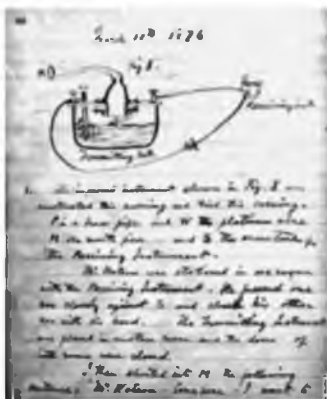 March 10th 1876
Fig. 1.
M
Receiving Inst.
Transmitting Inst.
1. The improved instrument shown in Fig. 1 was
constructed this evening and tried this evening.
P is a brass pipe and W the platinum wire
M the mouth piece and S the armature of
the Receiving Instrument.
Mr. Watson was stationed in one room
with the Receiving Instrument. He pressed one
ear closely against S and closed his other
ear with his hand. The Transmitting Instrument
was placed in another room and the doors of
both rooms were closed.
I then shouted into M the following
sentence: Mr. Watson Come here I want to